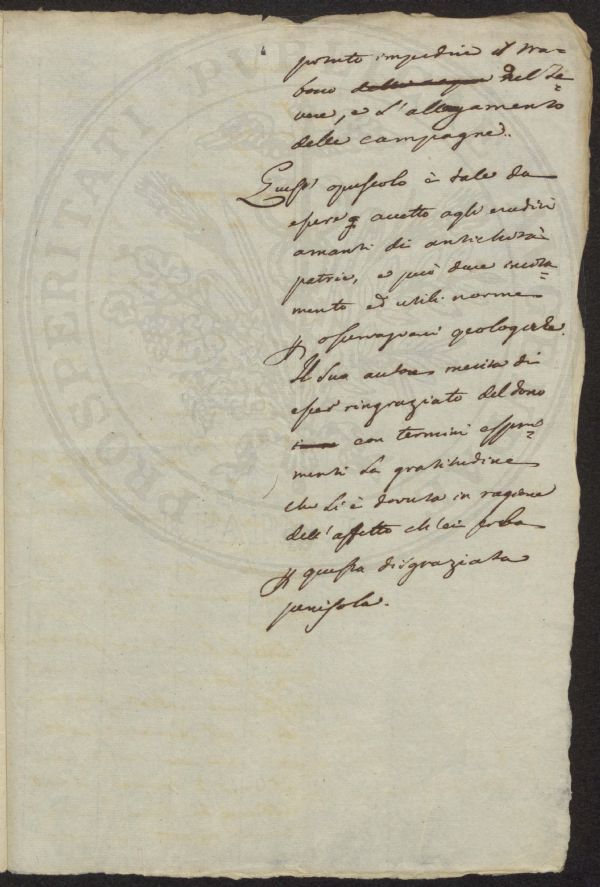 potuto impedire il tra-
bocco delle acque del Te=
vere, e l'allagamento
delle campagne.
Quest' opuscolo è tale da
essere accetto agli eruditi
amanti di antichità
patrie, e può dare incita=
mento ed utili norme
osservazioni geologiche.
Il Suo autore merita di
esser ringraziato del dono
con termini espri=
menti la gratitudine
che li è dovuta in ragione
dell'affetto ch'ei serba
questa disgraziata
penisola.
PROSPERITATI PUB